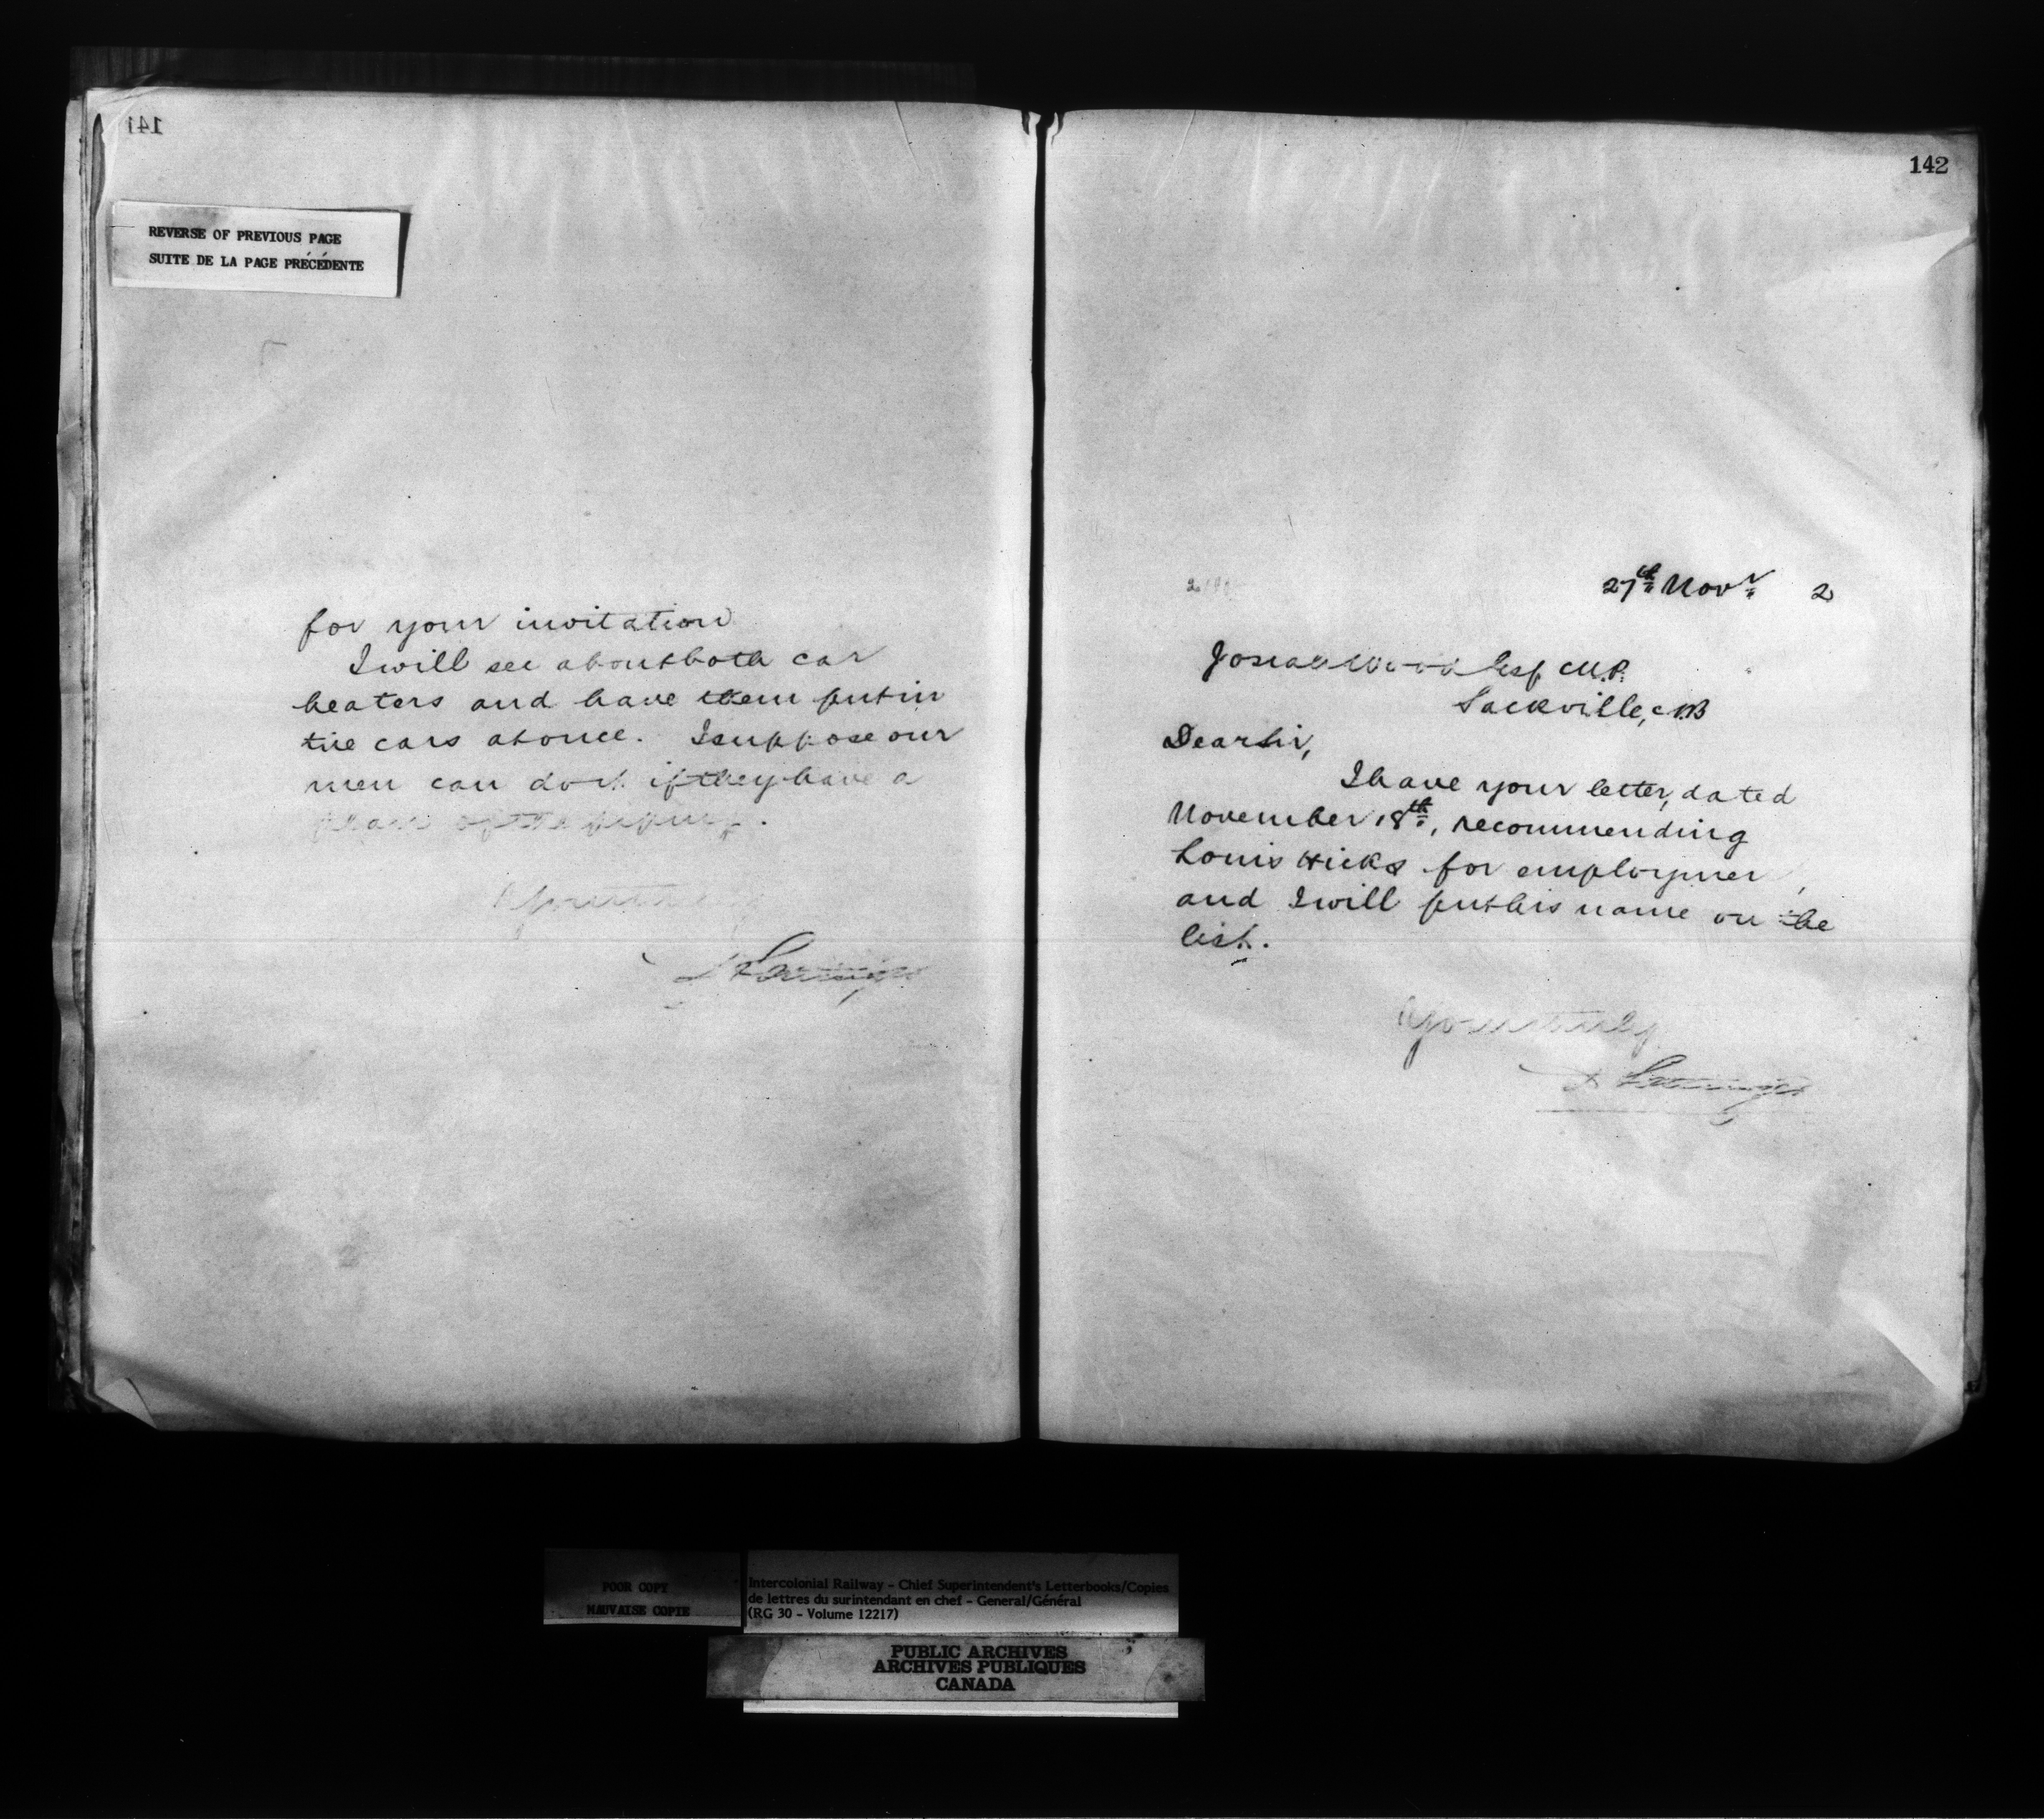 141
REVERSE OF PREVIOUS PAGE
SUITE DE LA PAGE PRÉCÉDENTE
for your invitation
I will see about both car
heaters and have them put in
the cars at once. I suppose our
men can do it if they have a
of the piping.
Yours truly
142
27th Novr 2
Josiah Wood Esq M.P.
Sackville, NB
Dear Sir,
I have your letter, dated
November 18th, recommending
Louis Hicks for employmen,
and I will put his name on the
list.
Yours truly
POOR COPY
MAUVAISE COPIE
Intercolonial Railway - Chief Superintendent's Letterbooks/Copies
de lettres du surintendant en chef - General/Général
(RG 30 - Volume 12217)
PUBLIC ARCHIVES
ARCHIVES PUBLIQUES
CANADA